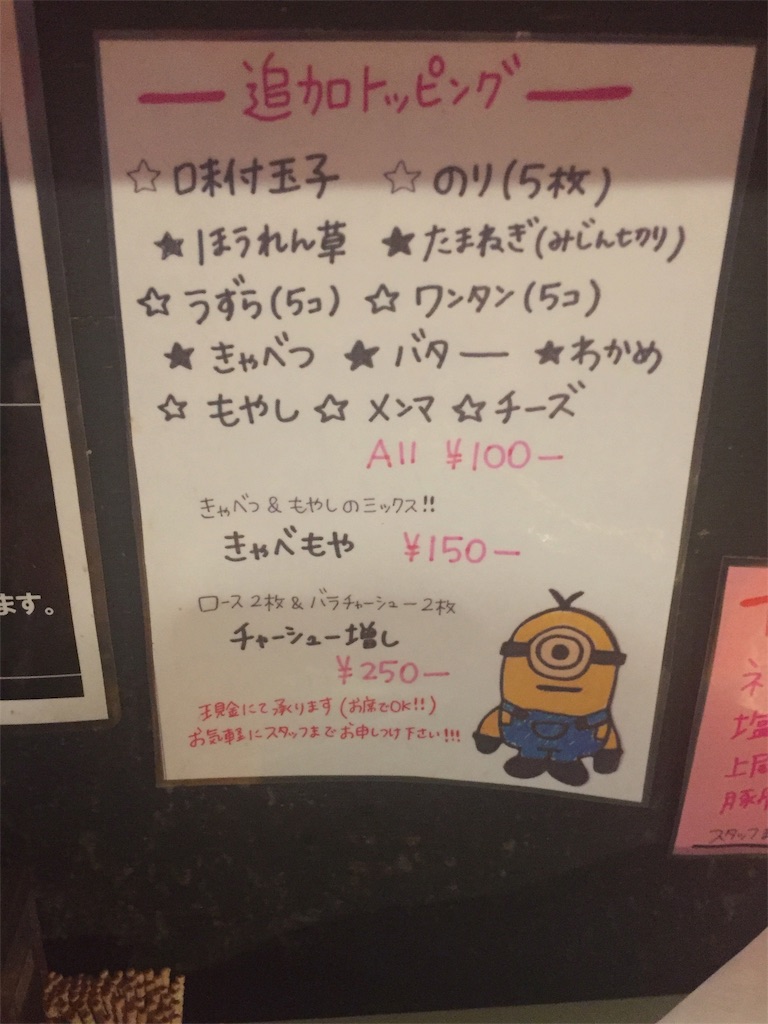 追加トッピング
☆味付玉子 ☆のり(5枚)
★ほうれん草 ★たまねぎ(みじん切り)
☆うずら(5コ) ☆ワンタン(5コ)
★きゃべつ ★バター ★わかめ
☆もやし ☆メンマ ☆チーズ
All ¥100-
きゃべつ&もやしのミックス!!
きゃべもや ¥150-
ロース2枚&バラチャーシュー2枚
チャーシュー増し
¥250-
現金にて承ります(お席でOK!!)
お気軽にスタッフまでお申しつけ下さい!!!
ます。
ネ
塩
上
豚
スタッフ